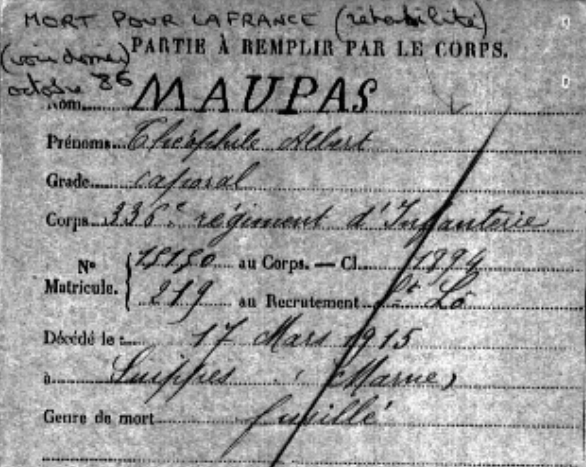 MORT POUR LA FRANCE (réhabilité)
(voir dossier)
octobre 86
PARTIE À REMPLIR PAR LE CORPS.
Nom MAUPAS
Prénoms Théophile Albert
Grade caporal
Corps 336e régiment d'Infanterie
No Matricule. { 15150 au Corps. — Cl. 1894
219 au Recrutement St Lô
Décédé le : 17 Mars 1915
à Suippes (Marne)
Genre de mort fusillé